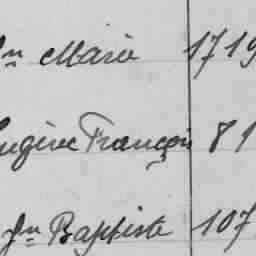 Jn Marie 1719
Eugène François 81
Jn Baptiste 107